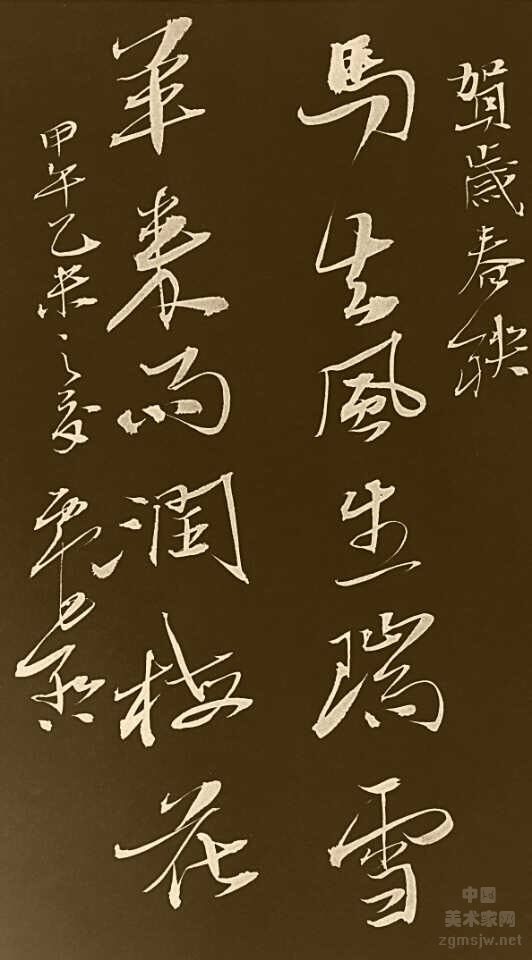 賀歲春联
馬去風生瑞雪
羊来雨潤梅花
甲午乙未之交
中国
美术家网
zgmsjw.net